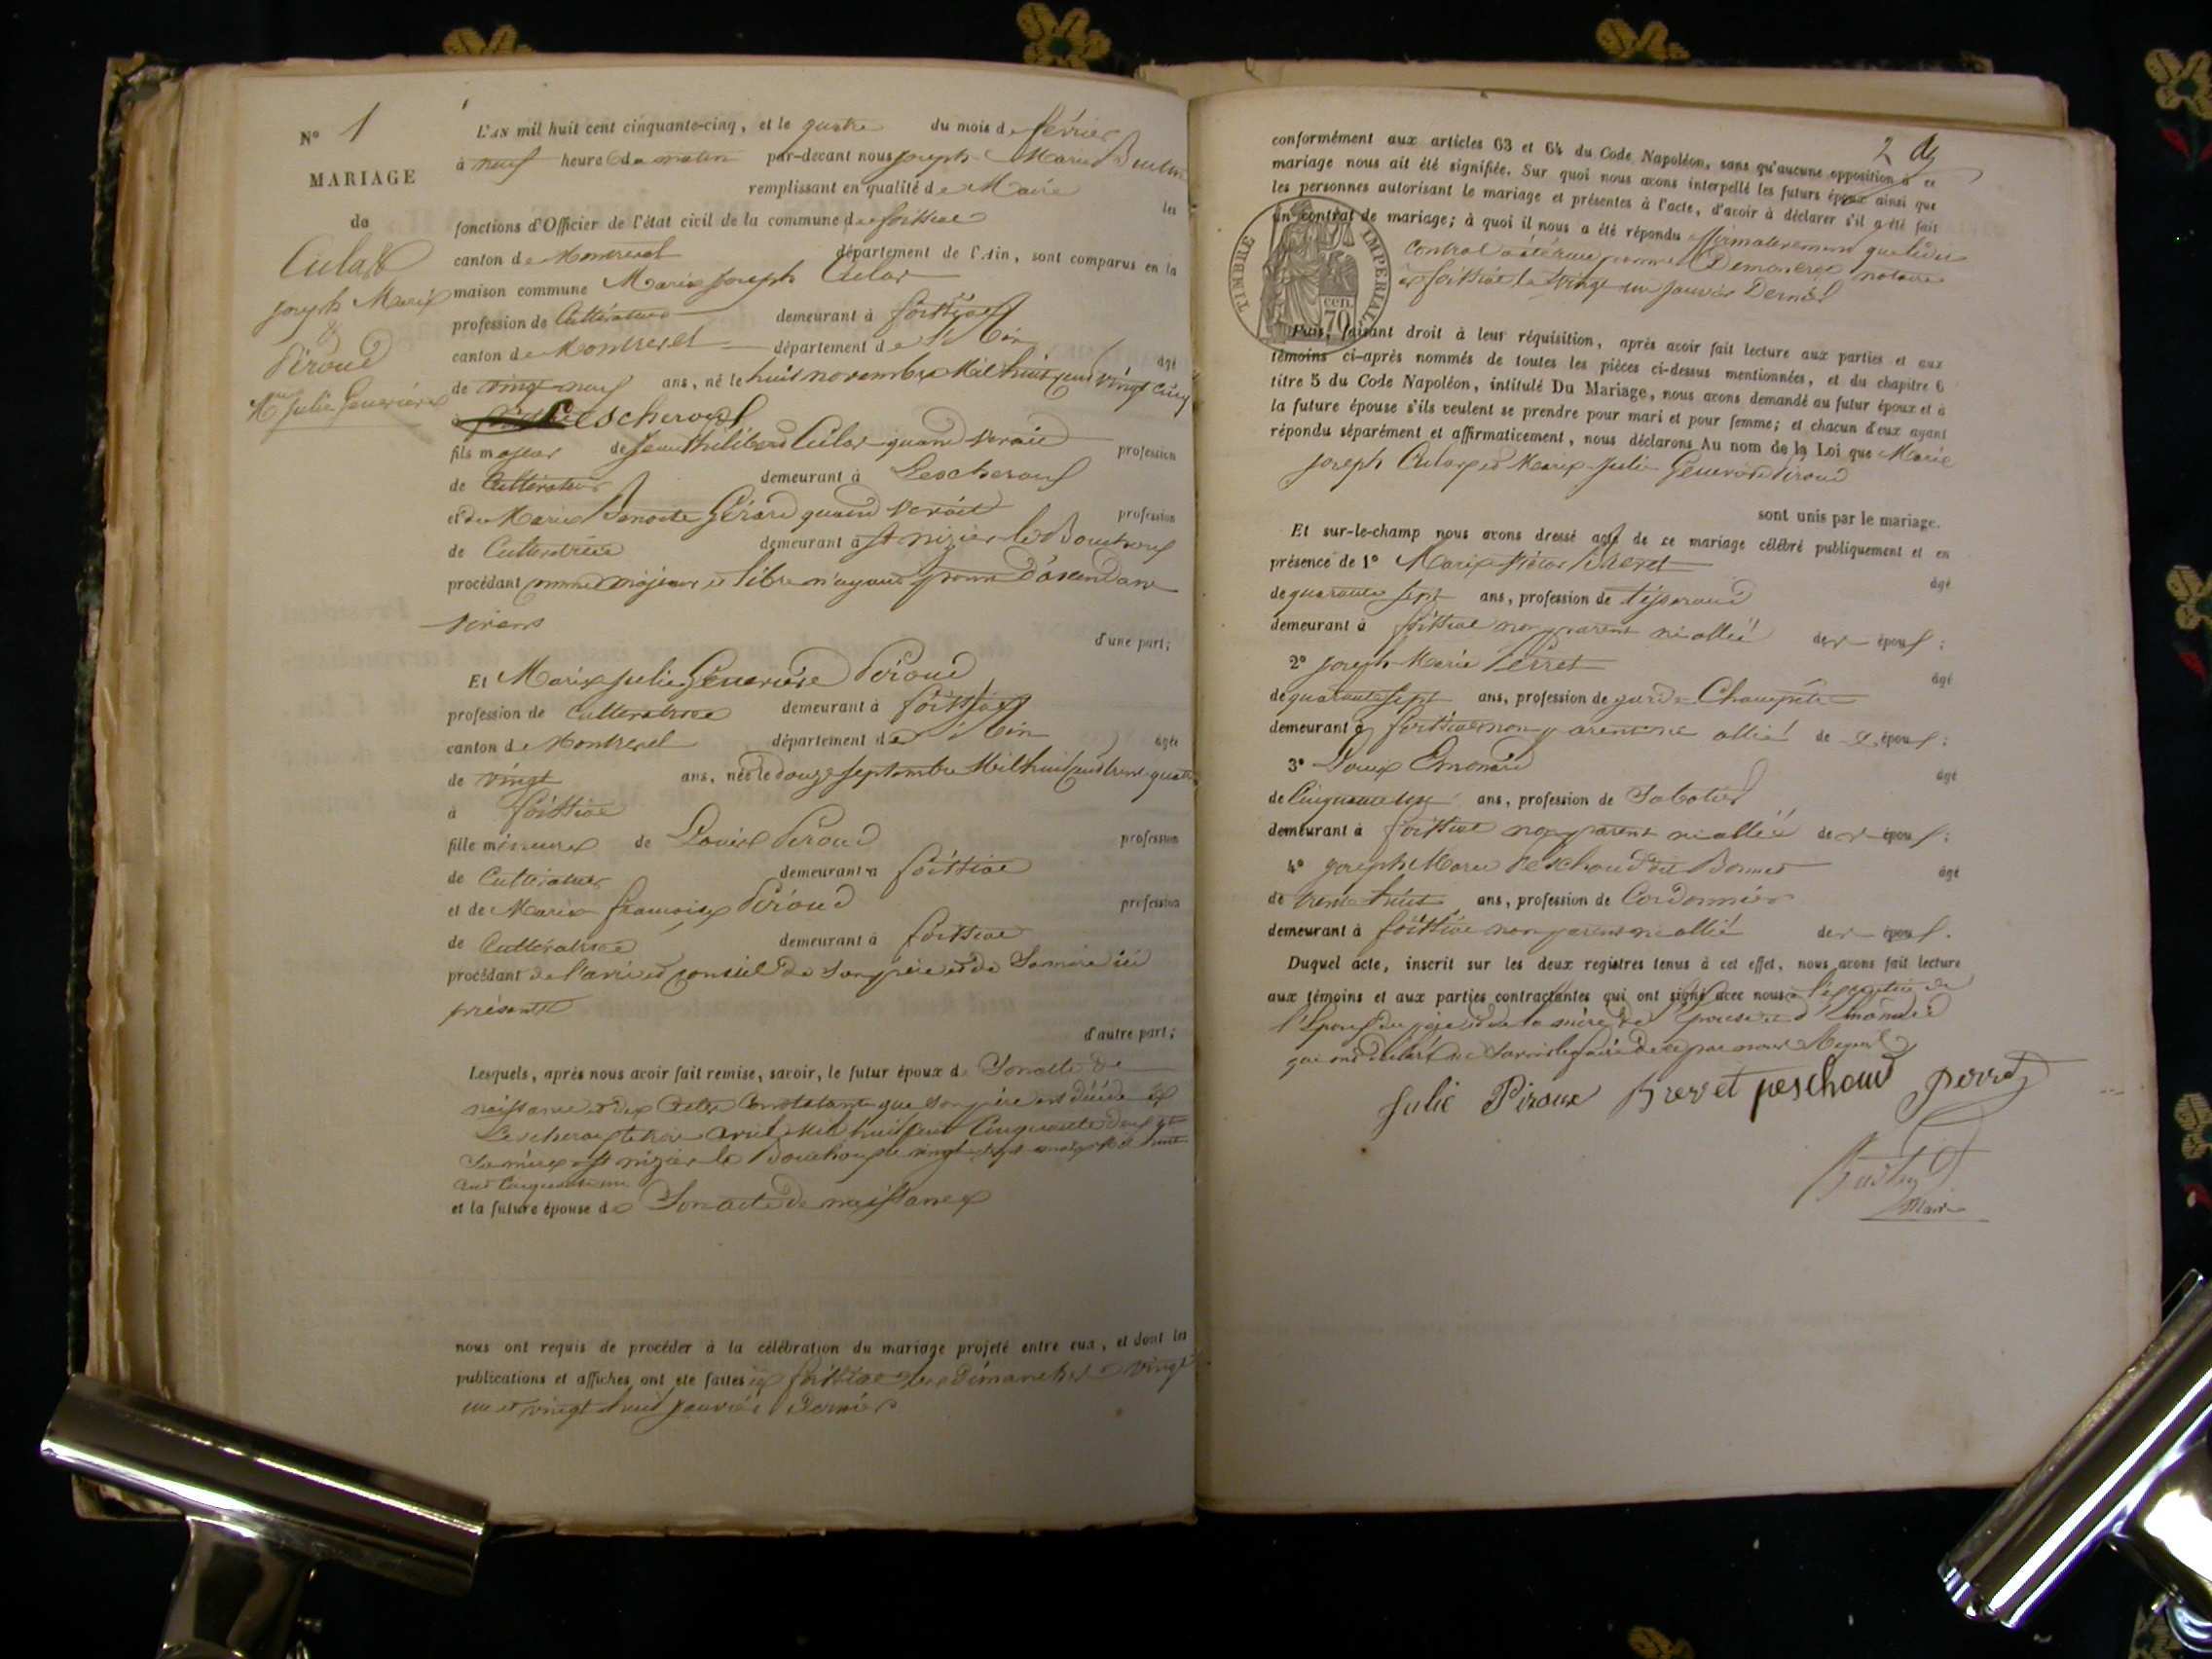 N° 1
MARIAGE
de
Joseph Marie
&
Piroud
Mie Julie Geneviève
L'AN mil huit cent cinquante-cinq, et le quatre du mois de février
à neuf heures du matin par-devant nous Joseph Marie
remplissant en qualité de Maire les
fonctions d'Officier de l'état civil de la commune de foissiat
canton de Montrevel département de l'Ain, sont comparus en la
maison commune Marie Joseph
profession de Cultivateur demeurant à foissiat
canton de Montrevel département de l'Ain âgé
de vingt neuf ans, né le huit novembre Mil huit cent vingt cinq
à Lescheroux
fils majeur de Jean Philibert quand vivait profession
de Cultivateur demeurant à Lescheroux
et de Marie Benoite Gérard quand vivait profession
de Cultivatrice demeurant à St nizier le Bouchoux
procédant comme majeur et libre n'ayant point d'ascendans
vivans
d'une part;
Et Marie Julie Geneviève Piroud
profession de Cultivatrice demeurant à foissiat
canton de Montrevel département de l'Ain âgée
de vingt ans, née le douze septembre Mil huit cent trente quatre
à foissiat
fille mineure de Louis Piroud profession
de Cultivateur demeurant à foissiat
et de Marie françoise Piroud profession
de Cultivatrice demeurant à foissiat
procédant de l'avis et conseil de son père et de Sa mère ici
présents
d'autre part;
Lesquels, après nous avoir fait remise, savoir, le futur époux de Son acte de
naissance et des actes Constatant que son père est décédé à
Lescheroux le trois avril Mil huit cent Cinquante deux et
Sa mère à St nizier le Bouchoux le vingt sept
cent Cinquante un
et la future épouse de Son acte de naissance
nous ont requis de procéder à la célébration du mariage projeté entre eux, et dont les
publications et affiches ont été faites à foissiat les dimanches vingt
un et vingt huit janvier Dernier
2
conformément aux articles 63 et 64 du Code Napoléon, sans qu'aucune opposition à ce
mariage nous ait été signifiée. Sur quoi nous avons interpellé les futurs époux ainsi que
les personnes autorisant le mariage et présentes à l'acte, d'avoir à déclarer s'il a été fait
un contrat de mariage; à quoi il nous a été répondu affirmativement que led.
Contrat a été reçu par notaire
à foissiat le vingt un janvier Dernier
TIMBRE IMPERIAL
70 cen
Puis, faisant droit à leur réquisition, après avoir fait lecture aux parties et aux
témoins ci-après nommés de toutes les pièces ci-dessus mentionnées, et du chapitre 6
titre 5 du Code Napoléon, intitulé Du Mariage, nous avons demandé au futur époux et à
la future épouse s'ils veulent se prendre pour mari et pour femme; et chacun d'eux ayant
répondu séparément et affirmativement, nous déclarons Au nom de la Loi que Marie
Joseph et Marie Julie Geneviève Piroud
sont unis par le mariage.
Et sur-le-champ nous avons dressé acte de ce mariage célébré publiquement et en
présence de 1° Marie
âgé
de quarante sept ans, profession de tisserand
demeurant à foissiat non parent ni allié des époux;
2° Joseph Marie Perret
âgé
de quarante sept ans, profession de garde Champêtre
demeurant à foissiat non parent ni allié des époux;
3° Louis Emonard
âgé
de Cinquante ans, profession de Sabotier
demeurant à foissiat non parent ni allié des époux;
4° Joseph Marie Peschoud dit Bonnet
âgé
de trente huit ans, profession de Cordonnier
demeurant à foissiat non parent ni allié des époux.
Duquel acte, inscrit sur les deux registres tenus à cet effet, nous avons fait lecture
aux témoins et aux parties contractantes qui ont signé avec nous à l'exception de
l'époux du père et de la mère de l'épouse et d'Emonard
qui ont déclaré ne savoir le faire de ce par nous Requis
Julie Piroux Brevet peschoud perret
Maire